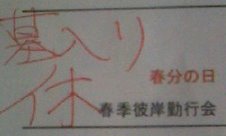 墓入り
春分の日
休
春季彼岸勤行会